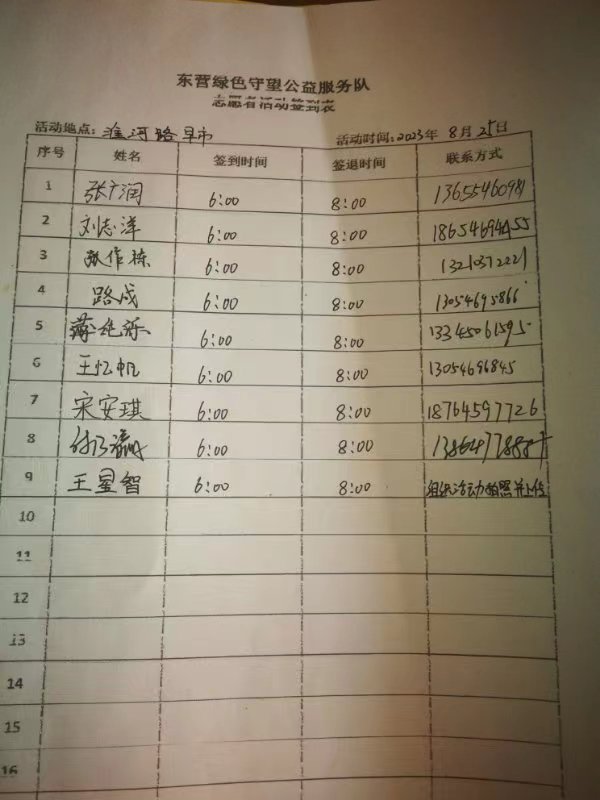 东营绿色守望公益服务队
志愿者活动签到表
活动地点：淮河路早市 活动时间：2023年8月25日
序号 姓名 签到时间 签退时间 联系方式
1 张广润 6:00 8:00
2 刘志洋 6:00 8:00 18654694455
3 张作栋 6:00 8:00 13210372221
4 路成 6:00 8:00 13054695866
5 6:00 8:00 13345061595
6 王忆帆 6:00 8:00 13054696845
7 宋安琪 6:00 8:00 18764597726
8 6:00 8:00
9 王星智 6:00 8:00 组织活动拍照并上传
10
11
12
13
14
15
16